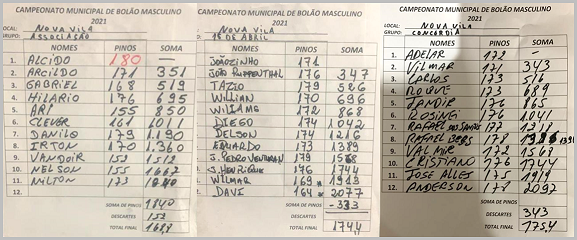 CAMPEONATO MUNICIPAL DE BOLÃO MASCULINO
2021
LOCAL: NOVA VILA
GRUPO: ASSOCIASÃO
NOMES PINOS SOMA
1. ALCIDO 180 —
2. ARCILDO 171 351
3. GABRIEL 168 519
4. HILARIO 176 695
5. ARI 155 850
6. CLEBER 161 1011
7. DANILO 179 1.190
8. IRTON 170 1.360
9. VANDOIR 152 1512
10. NELSON 155 1667
11. NILTON 173 1840
12.
SOMA DE PINOS 1840
DESCARTES 152
TOTAL FINAL 1688
CAMPEONATO MUNICIPAL DE BOLÃO MASCULINO
2021
NOVA VILA
15 DE ABRIL
NOMES PINOS SOMA
JOÃOZINHO 171
JOÃO 176 347
TAZIO 179 526
WILLIAN 170 696
WILLIAMS 172 868
DIEGO 174 1042
DELSON 174 1216
EDUARDO 173 1389
J. PEDRO 179 1568
J. HENRIQUE 176 1744
WILMAR 169 1913
DAVI 164 2077
SOMA DE PINOS -333
DESCARTES
TOTAL FINAL 1744
CAMPEONATO MUNICIPAL DE BOLÃO MASCULINO
2021
LOCAL: NOVA VILA
GRUPO: CONCORDIA
NOMES PINOS SOMA
1. ADELAR 172 —
2. VILMAR 171 343
3. CARLOS 173 516
4. ROQUE 173 689
5. SANDIR 176 865
6. ROSINEI 176 1.041
7. RAFAEL DOS SANTOS 172
8. RAFAEL 178 1391
9. VALMIR 172 1567
10. CRISTIANO 176 1744
11. JOSE ALLES 175 1919
12. ANDERSON 178 2097
SOMA DE PINOS
DESCARTES 343
TOTAL FINAL 1754